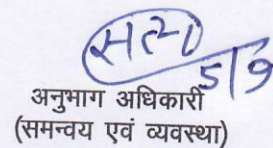 5/9
अनुभाग अधिकारी
(समन्वय एवं व्यवस्था)